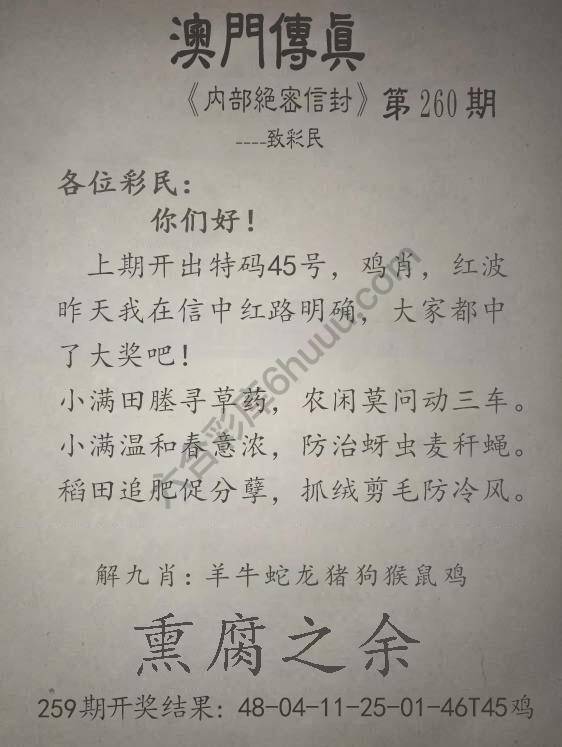 澳門傳眞
《内部絕密信封》第260期
----致彩民
各位彩民：
你们好！
上期开出特码45号，鸡肖，红波
昨天我在信中红路明确，大家都中
了大奖吧！
小满田塍寻草药，农闲莫问动三车。
小满温和春意浓，防治蚜虫麦秆蝇。
稻田追肥促分孽，抓绒剪毛防冷风。
解九肖：羊牛蛇龙猪狗猴鼠鸡
熏腐之余
259期开奖结果：48-04-11-25-01-46T45鸡
六合彩库6huuu.com